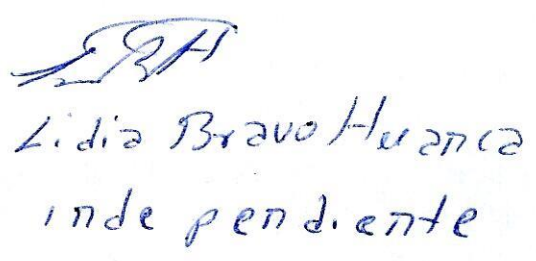 Lidia Bravo Huanca
independiente